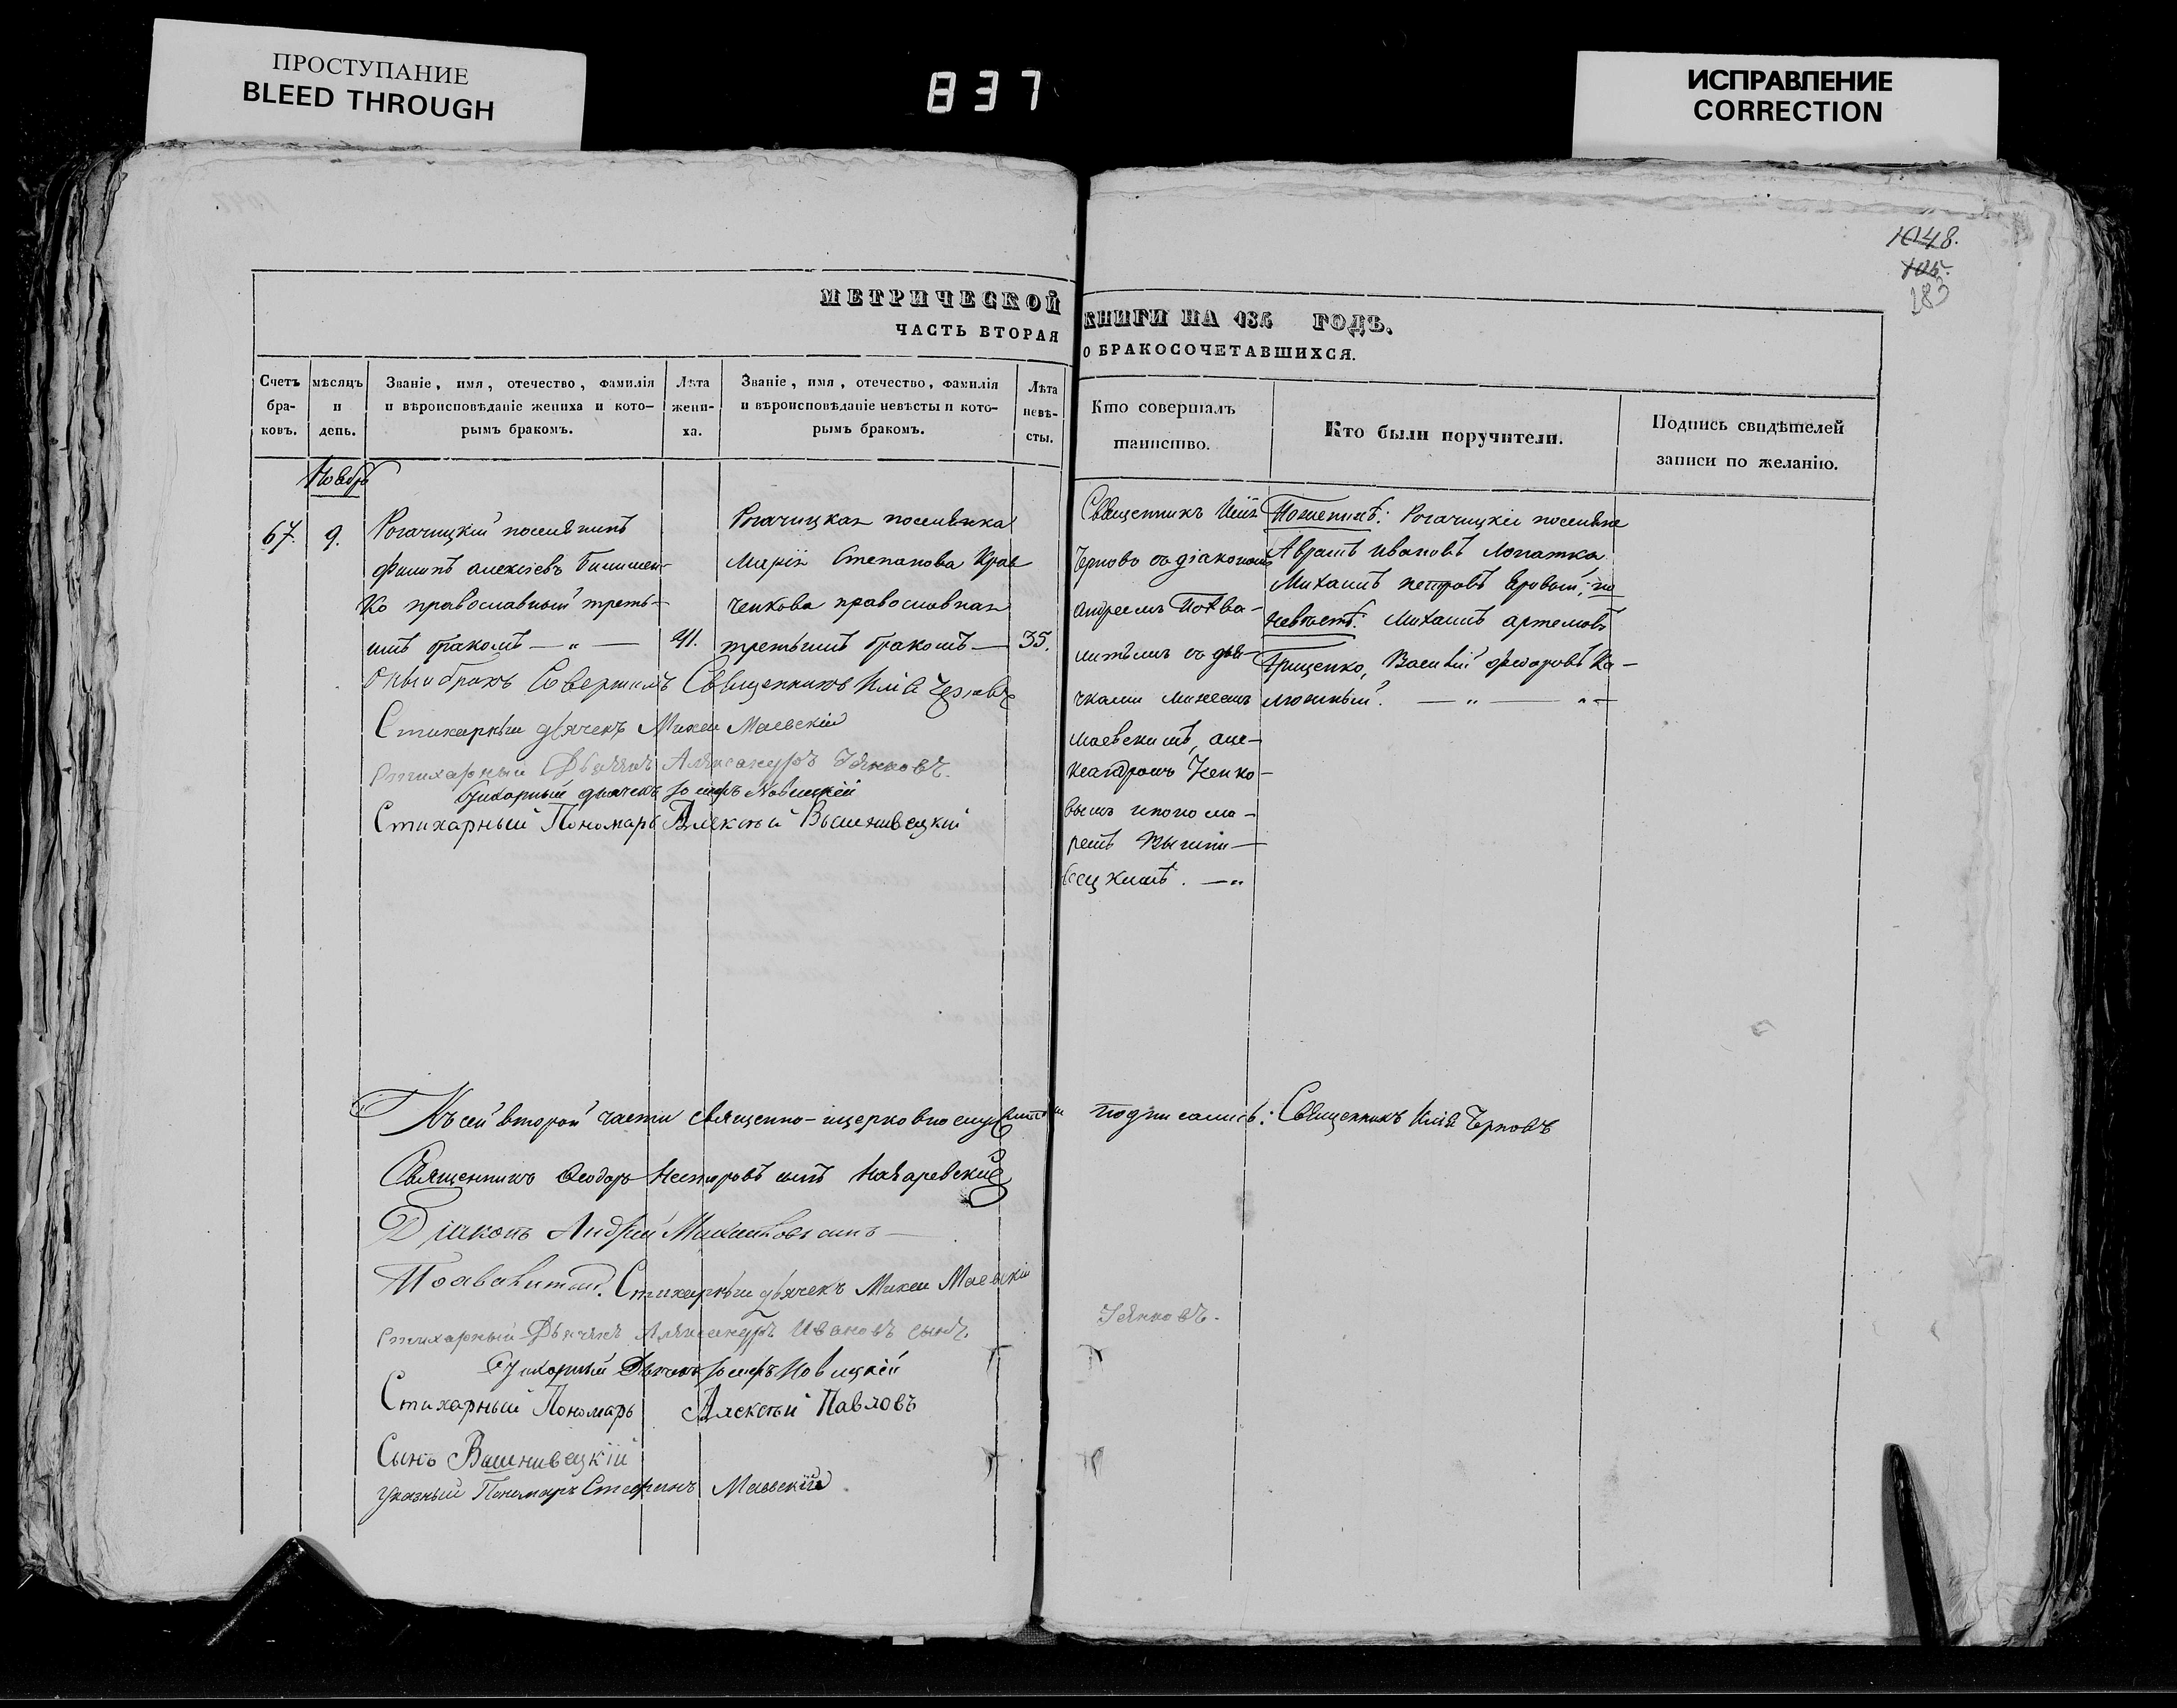 ПРОСТУПАНИЕ
BLEED THROUGH
837
ИСПРАВЛЕНИЕ
CORRECTION
1048.
105.
183
МЕТРИЧЕСКОЙ КНИГИ НА 185 ГОДЪ.
ЧАСТЬ ВТОРАЯ О БРАКОСОЧЕТАВШИХСЯ.
Счетъ
бра-
ковъ.
мѣсяцъ
и
день.
Званіе, имя, отечество, фамилія
и вѣроисповѣданіе жениха и кото-
рымъ бракомъ.
Лѣта
жени-
ха.
Званіе, имя, отечество, фамилія
и вѣроисповѣданіе невѣсты и кото-
рымъ бракомъ.
Лѣта
невѣ-
сты.
Кто совершалъ
таинство.
Кто были поручители.
Подпись свидѣтелей
записи по желанію.
Ноябрь
67.
9.
Рогачицкій поселянинъ
Филипъ Алексіевъ
ко православный треть-
имъ бракомъ — „ —
41.
Рогачицкая поселянка
Марія Степанова Крав
ченкова православная
третьимъ бракомъ —
35.
Священникъ Илія
Черновъ съ діакономъ
Андреемъ Похва-
литымъ съ дья-
чками Михеемъ
Маевскимъ, Але-
ксандромъ Ченко-
вымъ и поно ма-
ремъ Вышни-
вецкимъ. — „
По женихѣ: Рогачицкіе поселяне
Аврамъ Ивановъ Лопатка
Михаилъ Петровъ Яровый; по
невѣстѣ: Михаилъ Артемовъ
Грищенко, Василій Федоровъ Ка-
люжный. — „ — „ —
Оный бракъ Совершилъ Священникъ Илія Черновъ
Стихарный дьячекъ Михей Маевскій
Стихарный Дьячекъ Александръ
Стихарный дьячекъ Іосифъ Новицкій
Стихарный Пономарь Алексѣй Вышнивецкій
Къ сей второй части священно-и церковно служители подписались: Священникъ Илія Черновъ
Священникъ Ѳеодоръ Несторовъ сынъ
Діаконъ Андрей Михайловъ сынъ —
Стихарный дьячекъ Михей Маевскій
Стихарный Дьячекъ Александръ Ивановъ сынъ
Стихарный Дьячекъ Іосифъ Новицкій
Стихарный Пономарь Алексѣй Павловъ
Сынъ Вышнивецкій
Указный Пономарь Стефанъ Маевскій